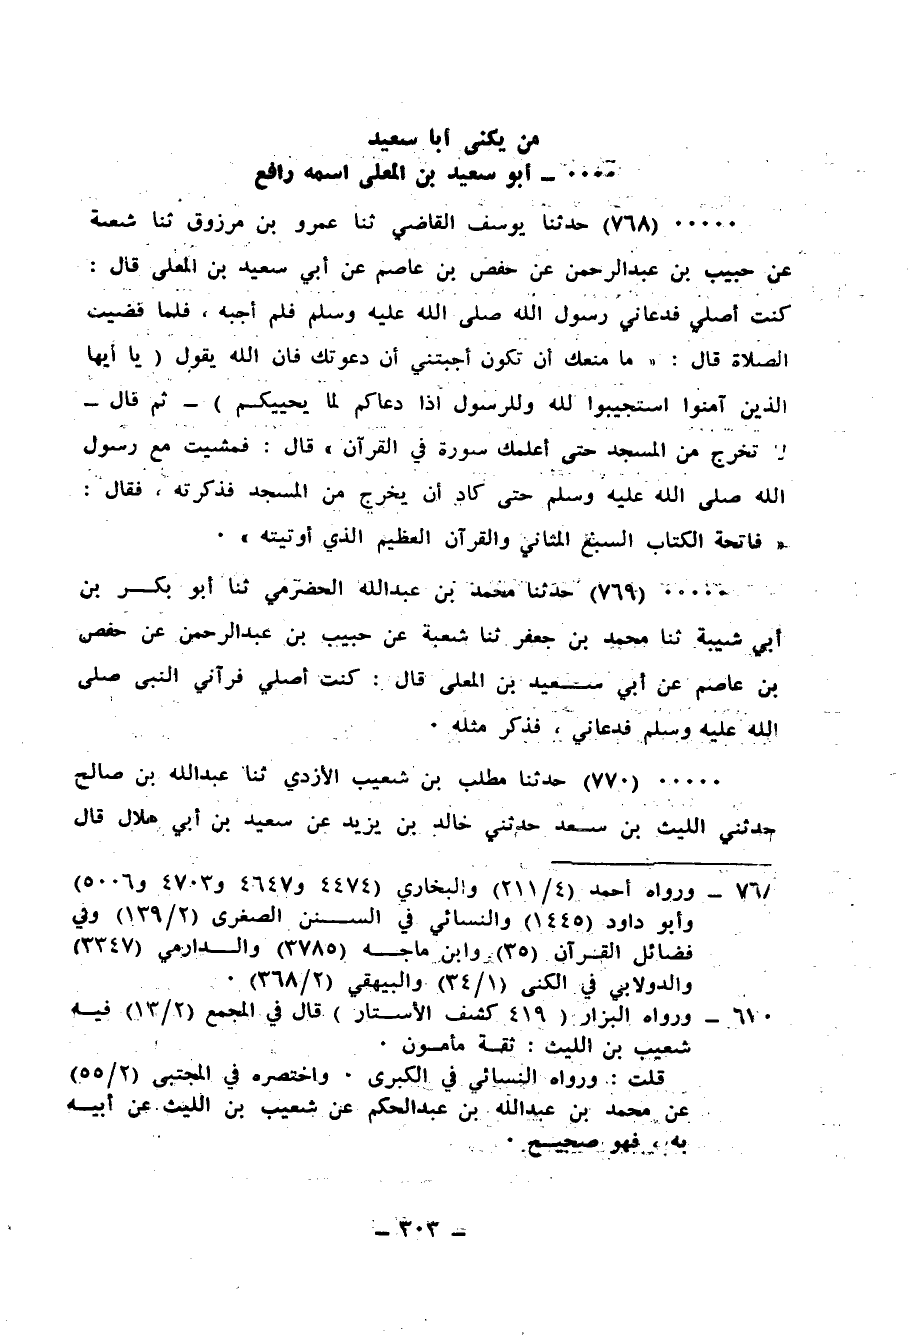 من يكنى أبا سعيد
٠٠٠٠ ــ أبو سعيد بن المعلى اسمه رافع
٠٠٠٠٠ (٧٦٨) حدثنا يوسف القاضي ثنا عمرو بن مرزوق ثنا شعبة
عن حبيب بن عبدالرحمن عن حفص بن عاصم عن أبي سعيد بن المعلى قال :
كنت أصلي فدعاني رسول الله صلى الله عليه وسلم فلم أجبه ، فلما قضيت
الصلاة قال : « ما منعك أن تكون أجبتني أن دعوتك فان الله يقول ( يا أيها
الذين آمنوا استجيبوا لله وللرسول اذا دعاكم لما يحييكم ) ــ ثم قال ــ
لا تخرج من المسجد حتى أعلمك سورة في القرآن » قال : فمشيت مع رسول
الله صلى الله عليه وسلم حتى كاد أن يخرج من المسجد فذكرته ، فقال :
« فاتحة الكتاب السبع المثاني والقرآن العظيم الذي أوتيته » ٠
٠٠٠٠٠ (٧٦٩) حدثنا محمد بن عبدالله الحضرمي ثنا أبو بكر بن
أبي شيبة ثنا محمد بن جعفر ثنا شعبة عن حبيب بن عبدالرحمن عن حفص
بن عاصم عن أبي سعيد بن المعلى قال : كنت أصلي فرآني النبي صلى
الله عليه وسلم فدعاني ، فذكر مثله ٠
٠٠٠٠٠ (٧٧٠) حدثنا مطلب بن شعيب الأزدي ثنا عبدالله بن صالح
حدثني الليث بن سعد حدثني خالد بن يزيد عن سعيد بن أبي هلال قال
٧٦/ ــ ورواه أحمد (٢١١/٤) والبخاري (٤٤٧٤ و٤٦٤٧ و٤٧٠٣ و٥٠٠٦)
وأبو داود (١٤٤٥) والنسائي في السنن الصغرى (١٣٩/٢) وفي
فضائل القرآن (٣٥) وابن ماجه (٣٧٨٥) والدارمي (٣٣٤٧)
والدولابي في الكنى (٣٤/١) والبيهقي (٣٦٨/٢) ٠
٦١٠ ــ ورواه البزار ( ٤١٩ كشف الأستار ) قال في المجمع (١٣/٢) فيه
شعيب بن الليث : ثقة مأمون ٠
قلت : ورواه النسائي في الكبرى ٠ واختصره في المجتبى (٥٥/٢)
عن محمد بن عبدالله بن عبدالحكم عن شعيب بن الليث عن أبيه
به ، فهو صحيح ٠
ــ ٣٠٣ ــ